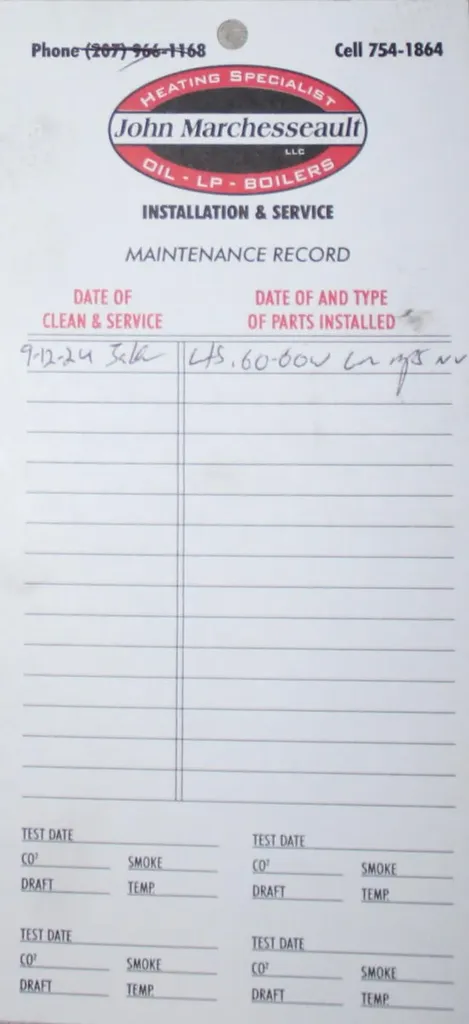 Phone (207) 966-1168 Cell 754-1864
HEATING SPECIALIST
John Marchesseault
LLC
OIL - LP - BOILERS
INSTALLATION & SERVICE
MAINTENANCE RECORD
DATE OF CLEAN & SERVICE
DATE OF AND TYPE OF PARTS INSTALLED
9-12-24 .60-60W
TEST DATE
CO²
SMOKE
DRAFT
TEMP.
TEST DATE
CO²
SMOKE
DRAFT
TEMP.
TEST DATE
CO²
SMOKE
DRAFT
TEMP.
TEST DATE
CO²
SMOKE
DRAFT
TEMP.